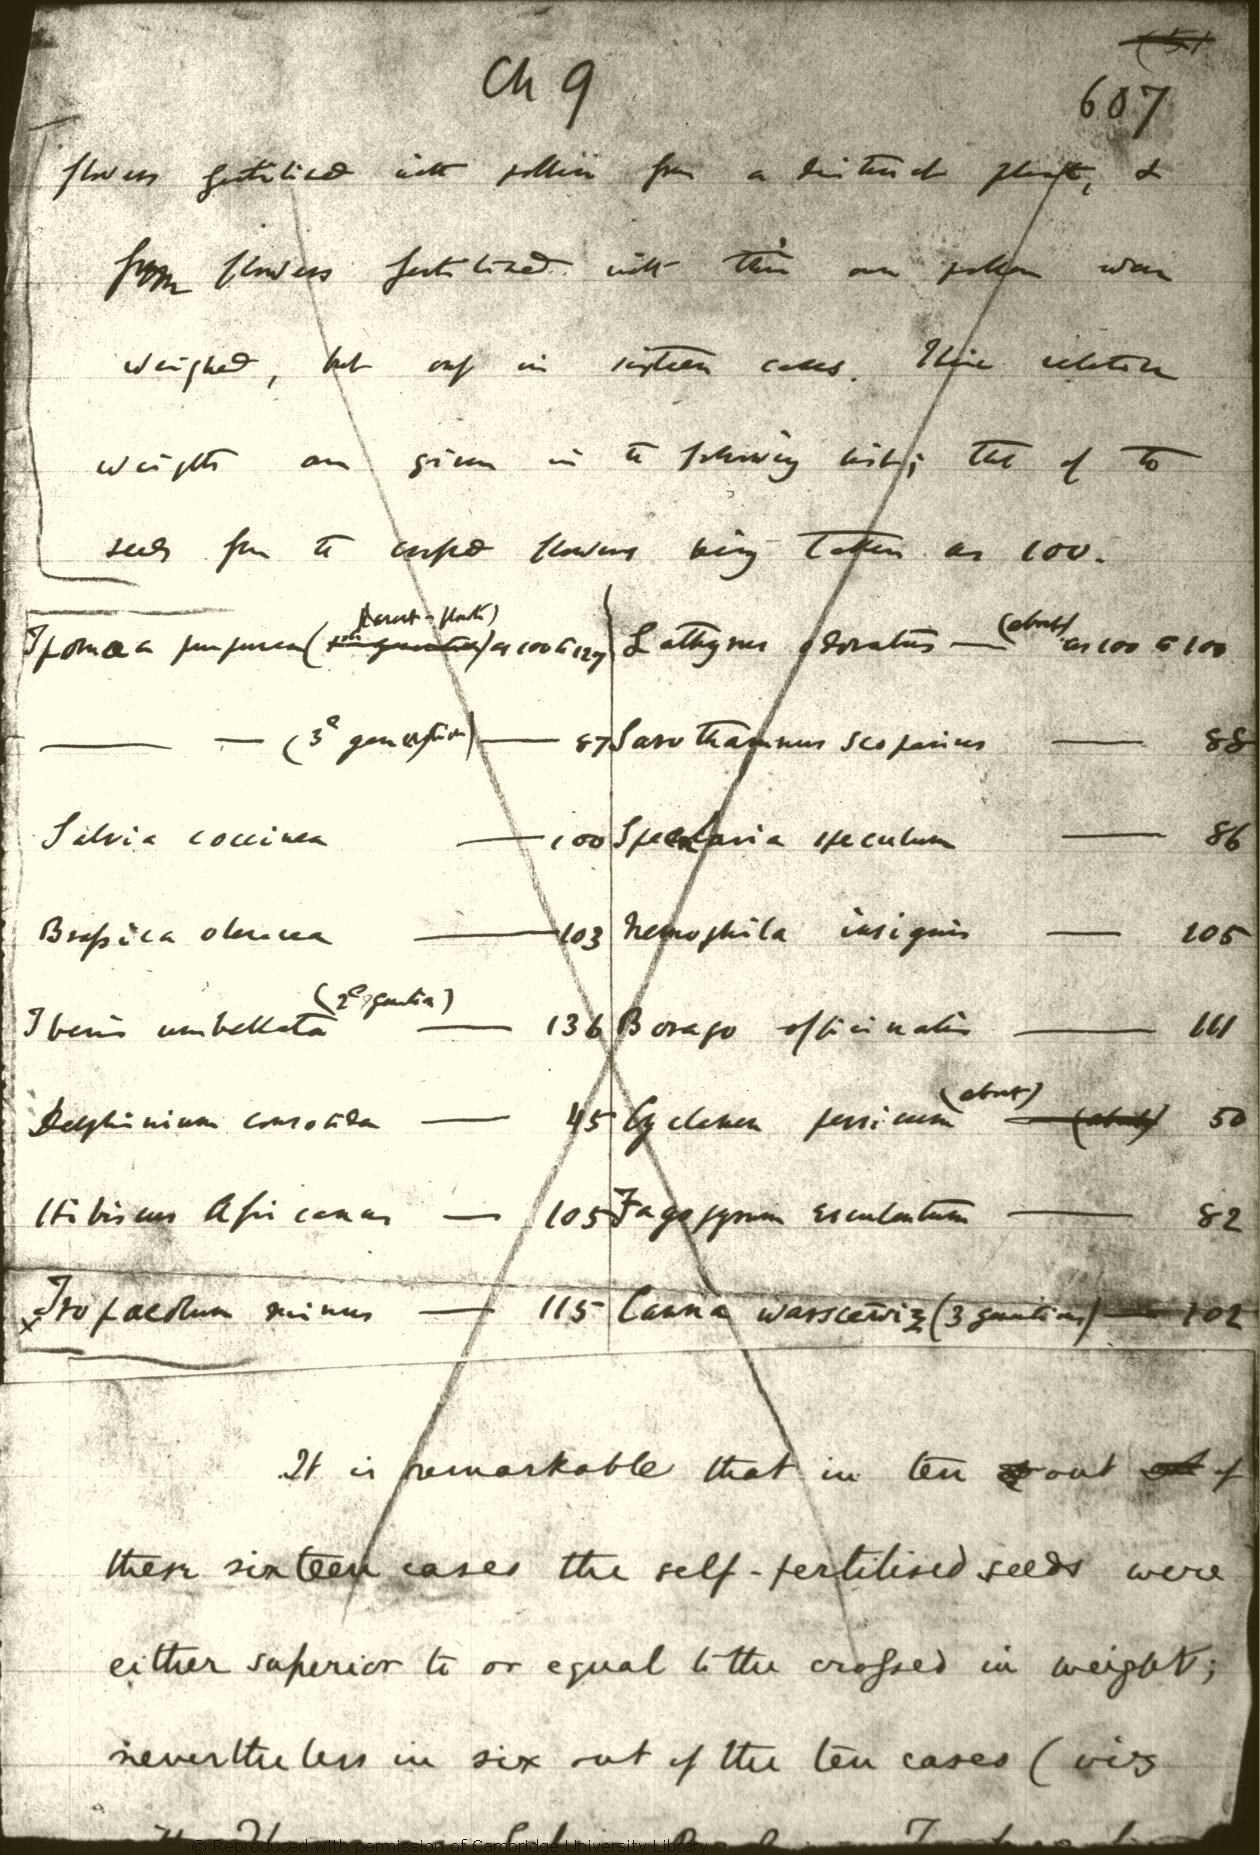 Ch 9
607
flowers fertilised with pollen from a distinct plant, &
from flowers fertilised with their own pollen were
weighed, but only in sixteen cases. Their relative
weights are given in the following list; that of the
seeds from the crossed flowers being taken as 100.
(Parent-plants)
Ipomœa purpurea as 100 to 127
— (3d generation) — 87
Salvia coccinea — 100
Brassica oleracea — 103
(2d generation)
Iberis umbellata — 136
Delphinium consolida — 45
Hibiscus Africanus — 105
x Tropaeolum minus — 115
(about)
Lathyrus odoratus — as 100 to 100
Sarothamnus scoparius — 88
Specularia speculum — 86
Nemophila insignis — 105
Borago officinalis — 111
(about)
Cyclamen persicum — (about) 50
Fagopyrum esculentum — 82
Canna warscewizi (3 generations) — 102
It is remarkable that in ten out of
these sixteen cases the self-fertilised seeds were
either superior to or equal to the crossed in weight;
nevertheless in six out of the ten cases (viz
© Reproduced with permission of Cambridge University Library